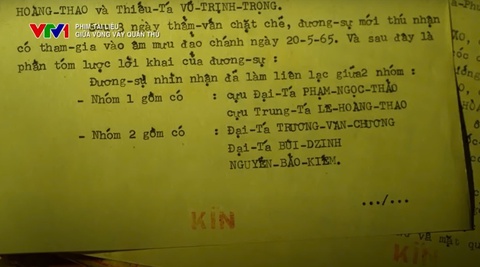 HOÀNG-THAO và Thiếu-Tá VŨ-TRỊNH-TRỌNG.
VTV1
PHIM TÀI LIỆU
GIỮA VÒNG VÂY QUÂN THÙ
ngày thẩm-vấn chặt chẽ, đương-sự mới thú nhận
có tham-gia vào âm mưu đảo chánh ngày 20-5-65. Và sau đây là
phần tóm lược lời khai của đương-sự :
Đương-sự nhìn nhận đã làm liên lạc giữa 2 nhóm :
- Nhóm 1 gồm có : cựu Đại-Tá PHẠM-NGỌC-THẢO
cựu Trung-Tá LÊ-HOÀNG-THAO
- Nhóm 2 gồm có : Đại-Tá TRƯƠNG-VĂN-CHƯƠNG
Đại-Tá BÙI-DZINH
NGUYỄN-BẢO-KIẾM.
.../...
KÍN
KÍN